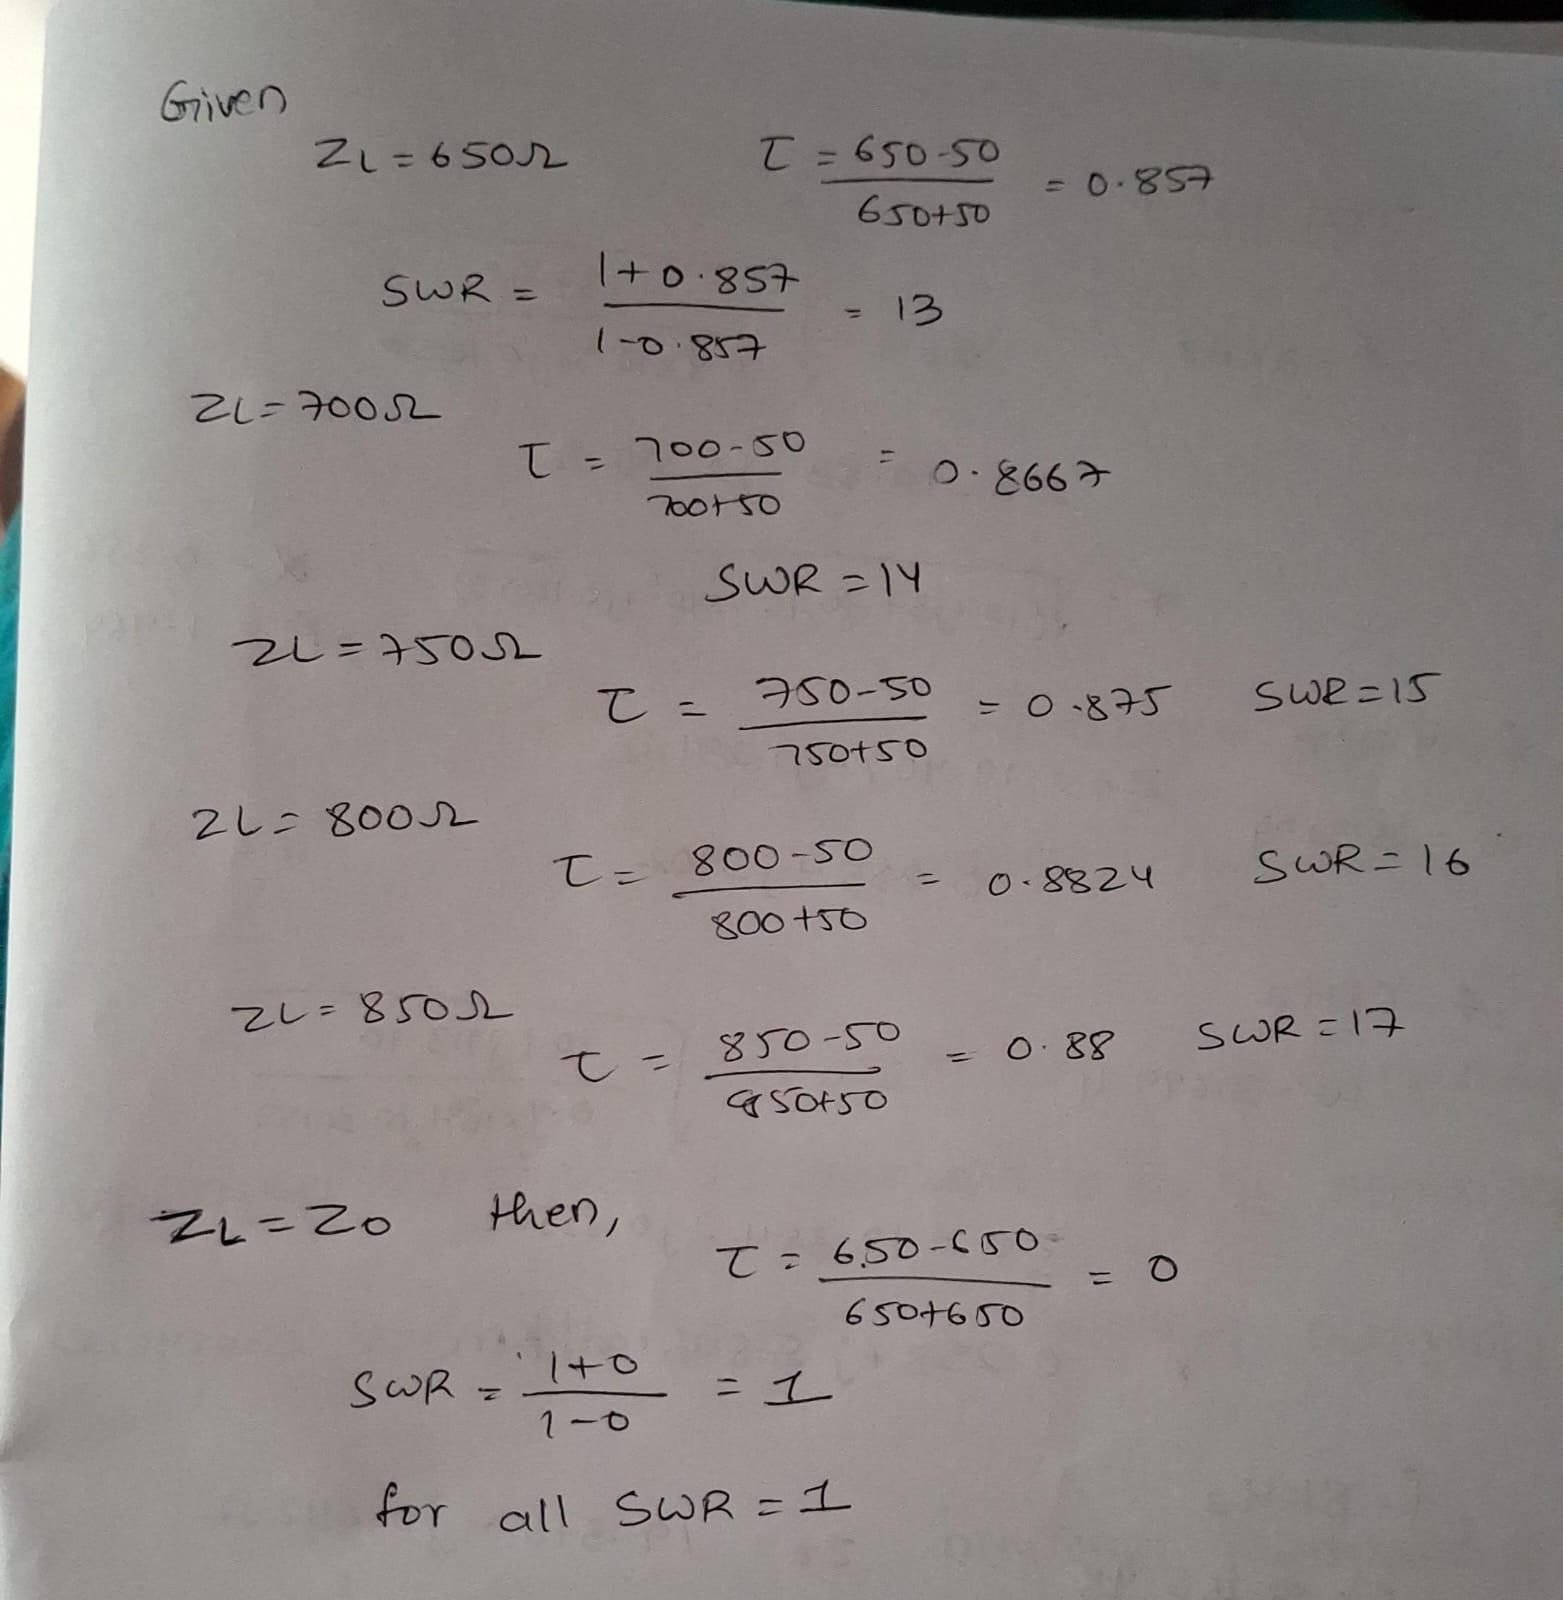 Given
ZL = 650Ω τ = 650-50 / 650+50 = 0.857
SWR = 1+0.857 / 1-0.857 = 13
ZL = 700Ω
τ = 700-50 / 700+50 = 0.8667
SWR = 14
ZL = 750Ω
τ = 750-50 / 750+50 = 0.875 SWR = 15
ZL = 800Ω
τ = 800-50 / 800+50 = 0.8824 SWR = 16
ZL = 850Ω
τ = 850-50 / 850+50 = 0.88 SWR = 17
ZL = Z0 then,
τ = 650-650 / 650+650 = 0
SWR = 1+0 / 1-0 = 1
for all SWR = 1